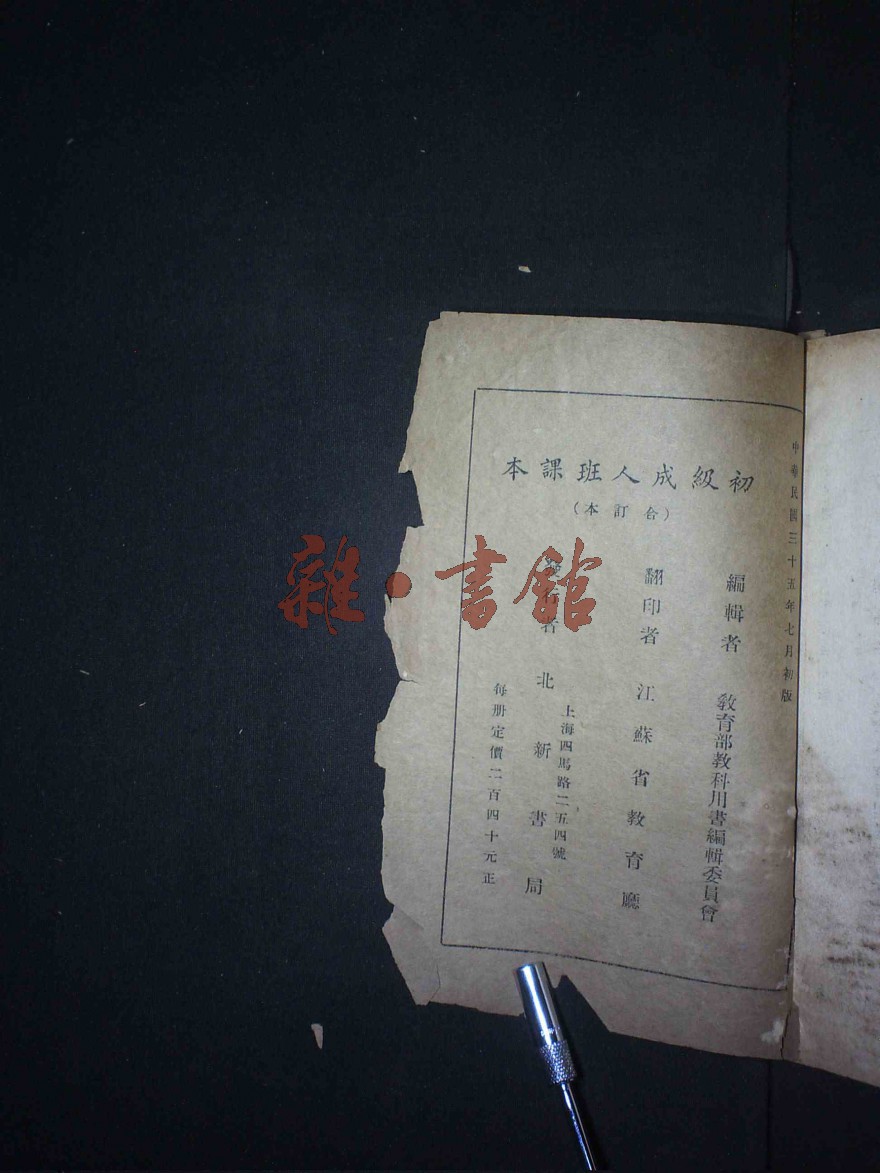 中華民國三十五年七月初版
初級成人班課本
（合訂本）
編輯者 教育部教科用書編輯委員會
翻印者 江蘇省教育廳
發行者 北新書局
上海四馬路二五四號
每册定價二百四十元正
雜·書館